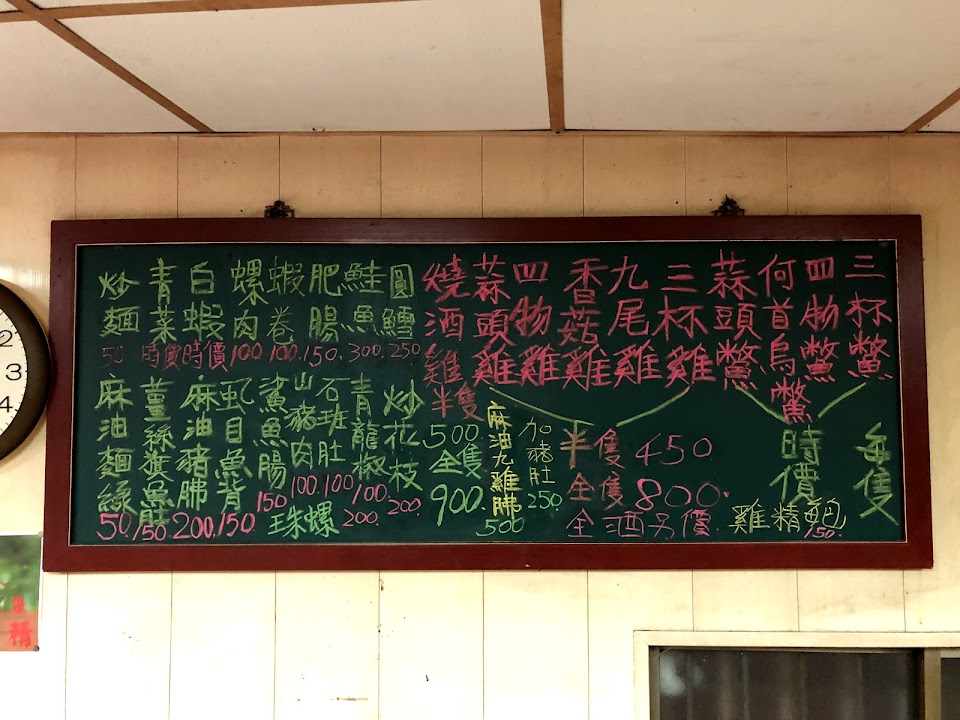 三杯鱉
四物鱉
何首烏鱉
蒜頭鱉
每隻
時價
三杯雞
九尾雞
香菇雞
四物雞
蒜頭雞
半隻450
全隻800.
全酒另價.
雞精麵
150.
燒酒雞
半隻
500
全隻
900.
加豬肚
250
麻油九雞腓
500
圓鱈
250
鮭魚
300.
肥腸
150.
蝦卷
100.
螺肉
100.
白蝦
時價
青菜
時價
炒麵
50
炒花枝
200.
青龍椒
100.
石班肚
100.
山豬肉
100.
珠螺
200.
鯊魚腸
150
虱目魚背
150
麻油豬腓
200
薑絲旗魚肚
150.
麻油麵線
50
2
3
4
精